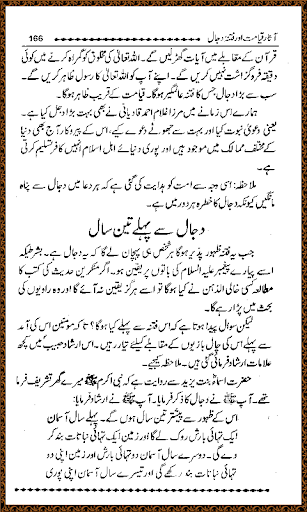 آثار قیامت اور فتنۂ دجال 166
قرآن کے مقابلے میں آیات گھڑ لیں گے۔ اللہ تعالیٰ کی مخلوق کو گمراہ کرنے میں کوئی
دقیقہ فروگزاشت نہیں کریں گے۔ اپنے آپ کو اللہ تعالیٰ کا رسول ظاہر کریں گے۔
سب سے بڑا دجال جس کا فتنہ عالمگیر ہوگا۔ قیامت کے قریب ظاہر ہوگا۔
ہمارے اس زمانے میں مرزا غلام احمد قادیانی نے بھی بہت بڑا دجل کیا ہے۔
یعنی دعویٰ نبوت کیا اور بہت سے جھوٹے دعوے کیے، اس کے پیروکار آج بھی دنیا
کے مختلف ممالک میں موجود ہیں اور پوری دنیائے اہل اسلام انہیں کافر تسلیم کرتی
ہے۔
ملاحظہ: اسی وجہ سے امت کو ہدایت کی گئی ہے کہ ہر دعا میں دجال سے پناہ
مانگیں کیونکہ دجال کا خطرہ ہر دور میں ہے۔
دجال سے پہلے تین سال
جب یہ فتنہ ظہور پذیر ہوگا ہر شخص ہی پہچان لے گا کہ یہ دجال ہے۔ بشرطیکہ
اسے پیارے پیغمبر علیہ السلام کی باتوں پر یقین ہو۔ اگر منکرین حدیث کی کتب کا
مطالعہ کسی خالی الذہن نے کیا ہوگا تو اسے ہرگز یقین نہ آئے گا اور وہ راویوں کی
بحث میں پڑا رہے گا۔
لیکن سوال پیدا ہوتا ہے کہ اس فتنہ سے پہلے کیا ہوگا؟ تاکہ مومنین اس کی آمد
سے پہلے اس کی چال بازیوں کے مقابلے کیلئے تیار رہیں۔ اس ارشاد حبیب میں کچھ
علامات ارشاد فرمائی گئی ہیں۔ ملاحظہ کیجیے۔
حضرت اسماءؓ بنت یزید سے روایت ہے کہ نبی اکرم ﷺ میرے گھر تشریف فرما
تھے۔ آپ ﷺ نے دجال کا ذکر فرمایا۔ آپ ﷺ نے ارشاد فرمایا:
اس کے ظہور سے پیشتر تین سال ہوں گے۔ پہلے سال آسمان
ایک تہائی بارش روک لے گا اور زمین ایک تہائی نباتات بند کر
دے گی۔ دوسرے سال آسمان دو تہائی بارش اور زمین اپنی دو
تہائی نباتات بند رکھے گی اور تیسرے سال آسمان اپنی پوری